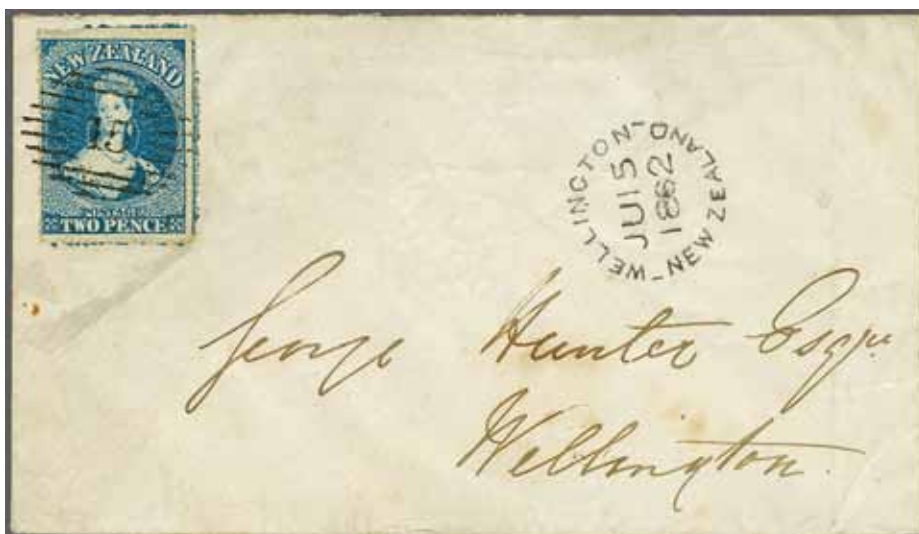 NEW ZEALAND
15
POSTAGE
TWO PENCE
WELLINGTON - NEW ZEALAND
JU 15
1862
George Hunter Esqre
Wellington.